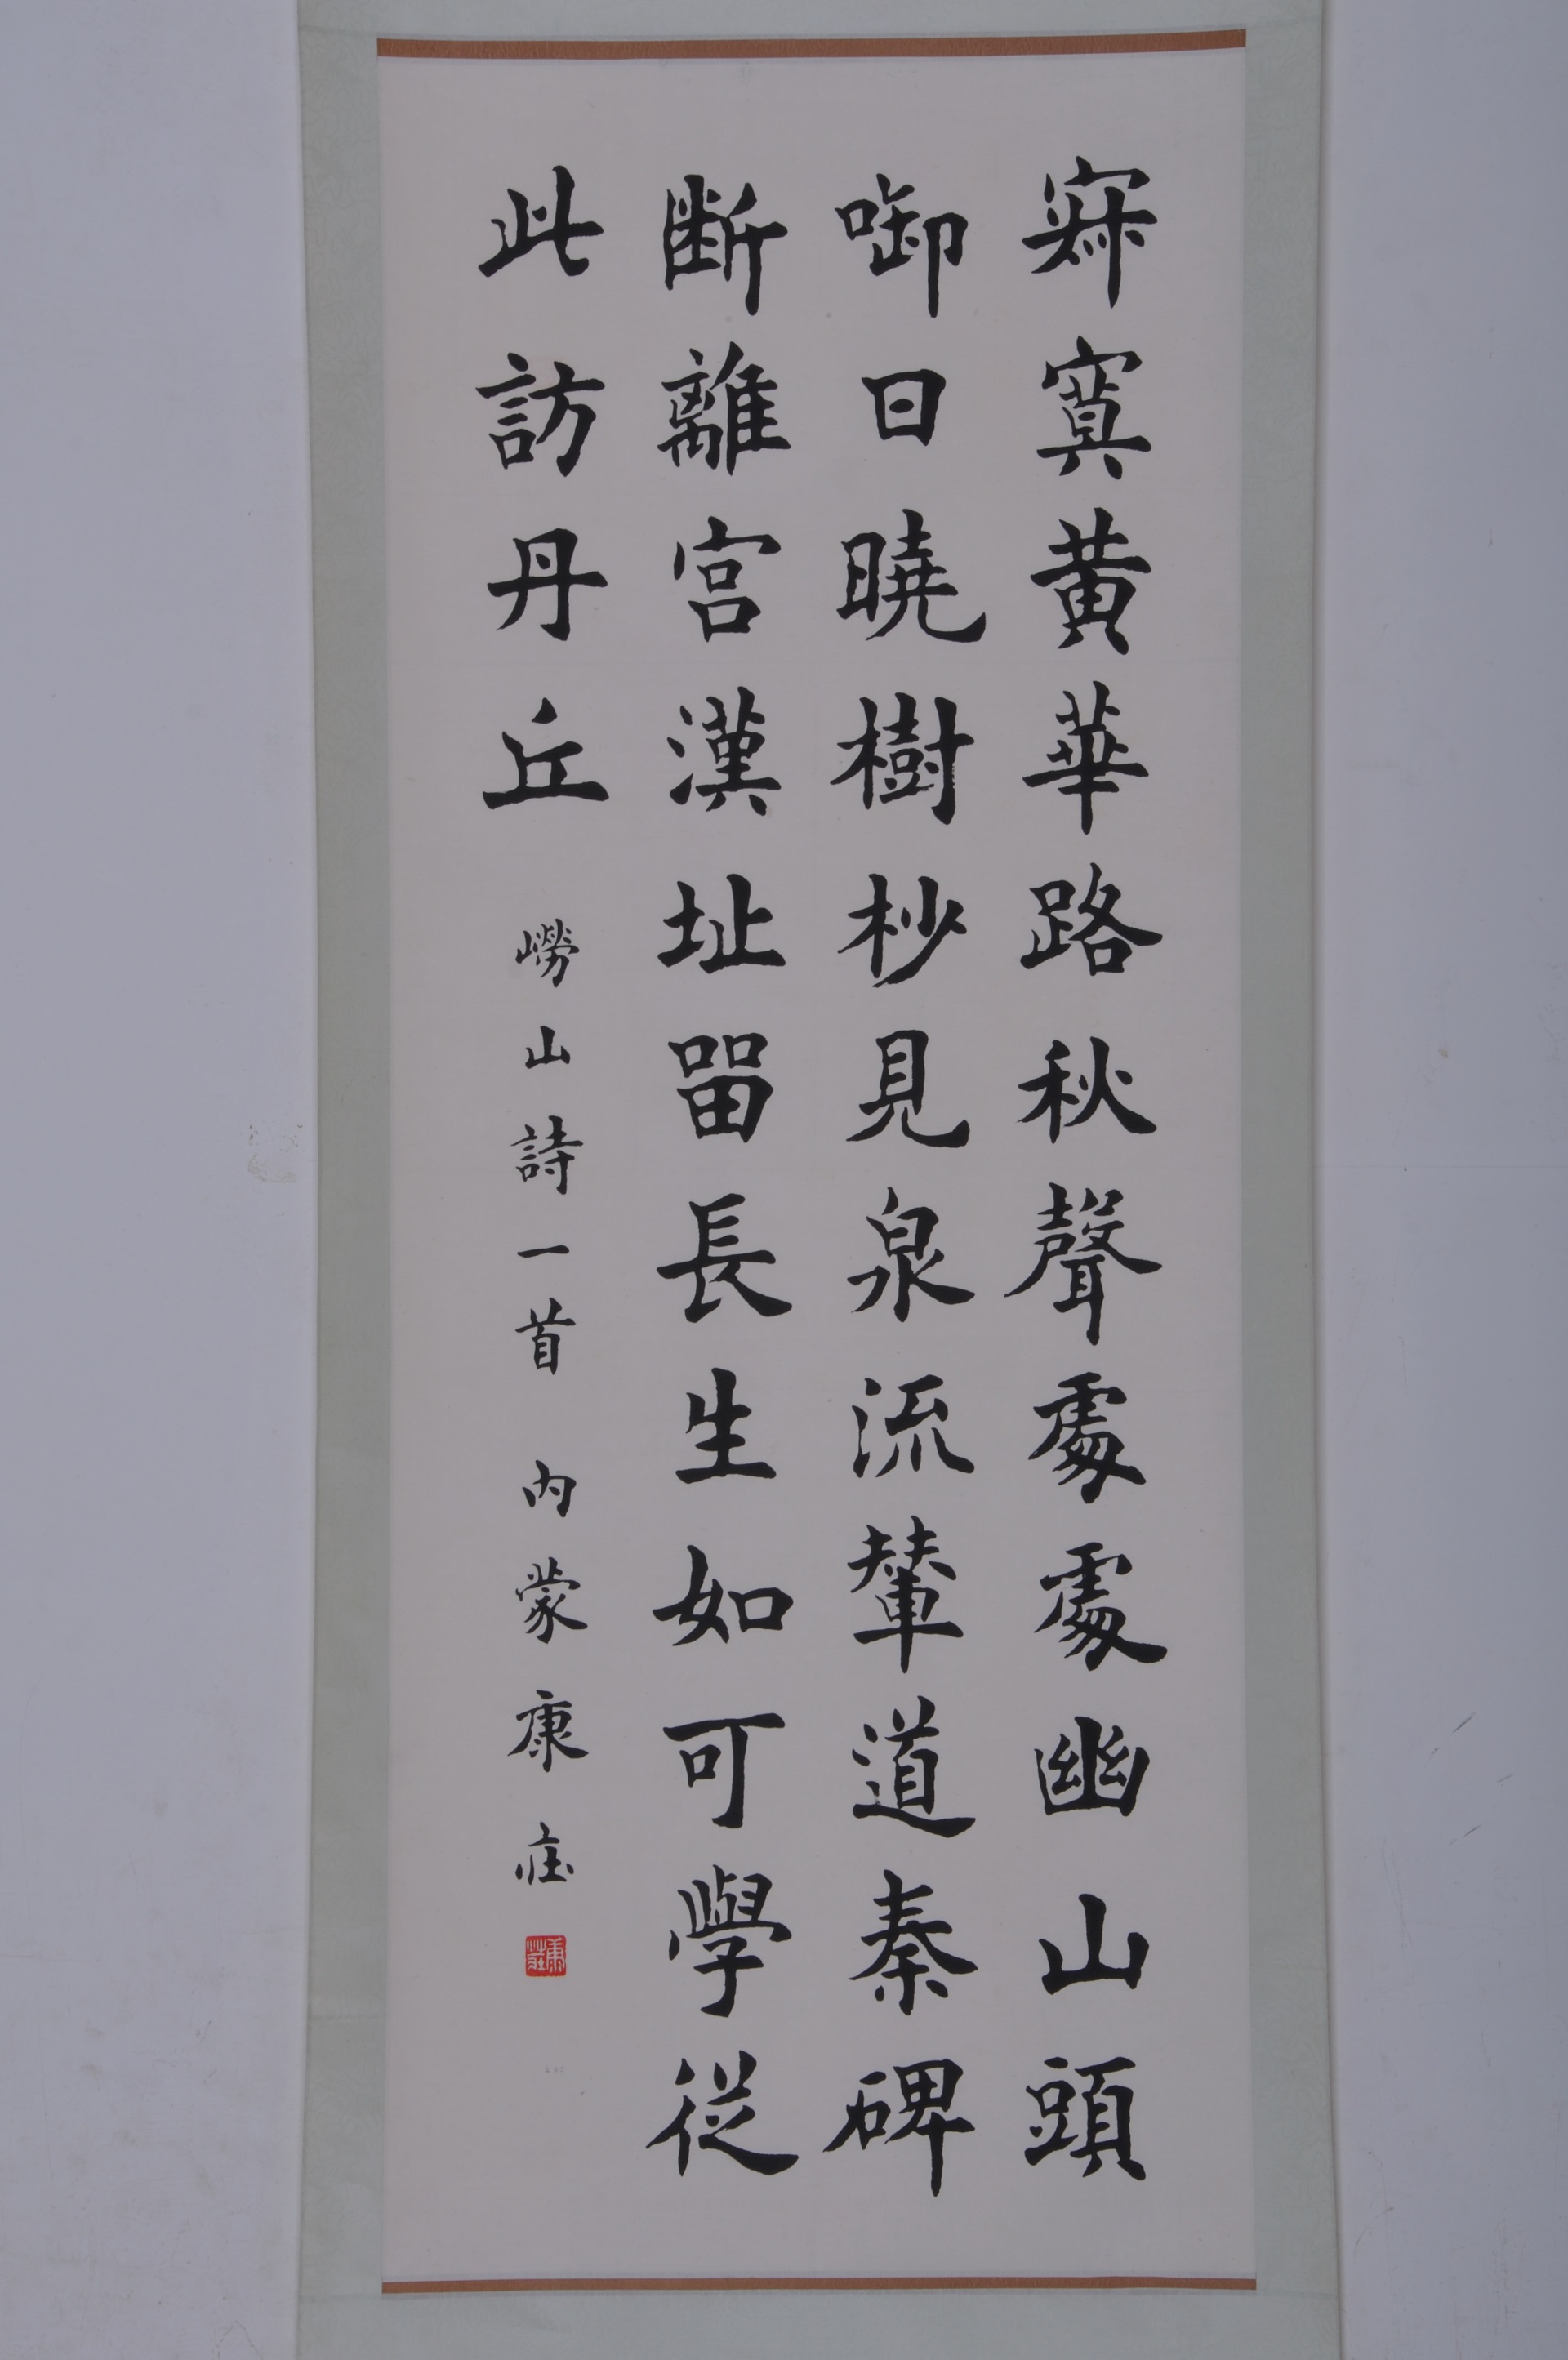 寂寞黄華路秋聲處處幽山頭
啣日曉樹杪見泉流輦道秦碑
断離宫漢址畱長生如可學從
此訪丹丘
嶗山詩一首 内蒙康莊
康莊